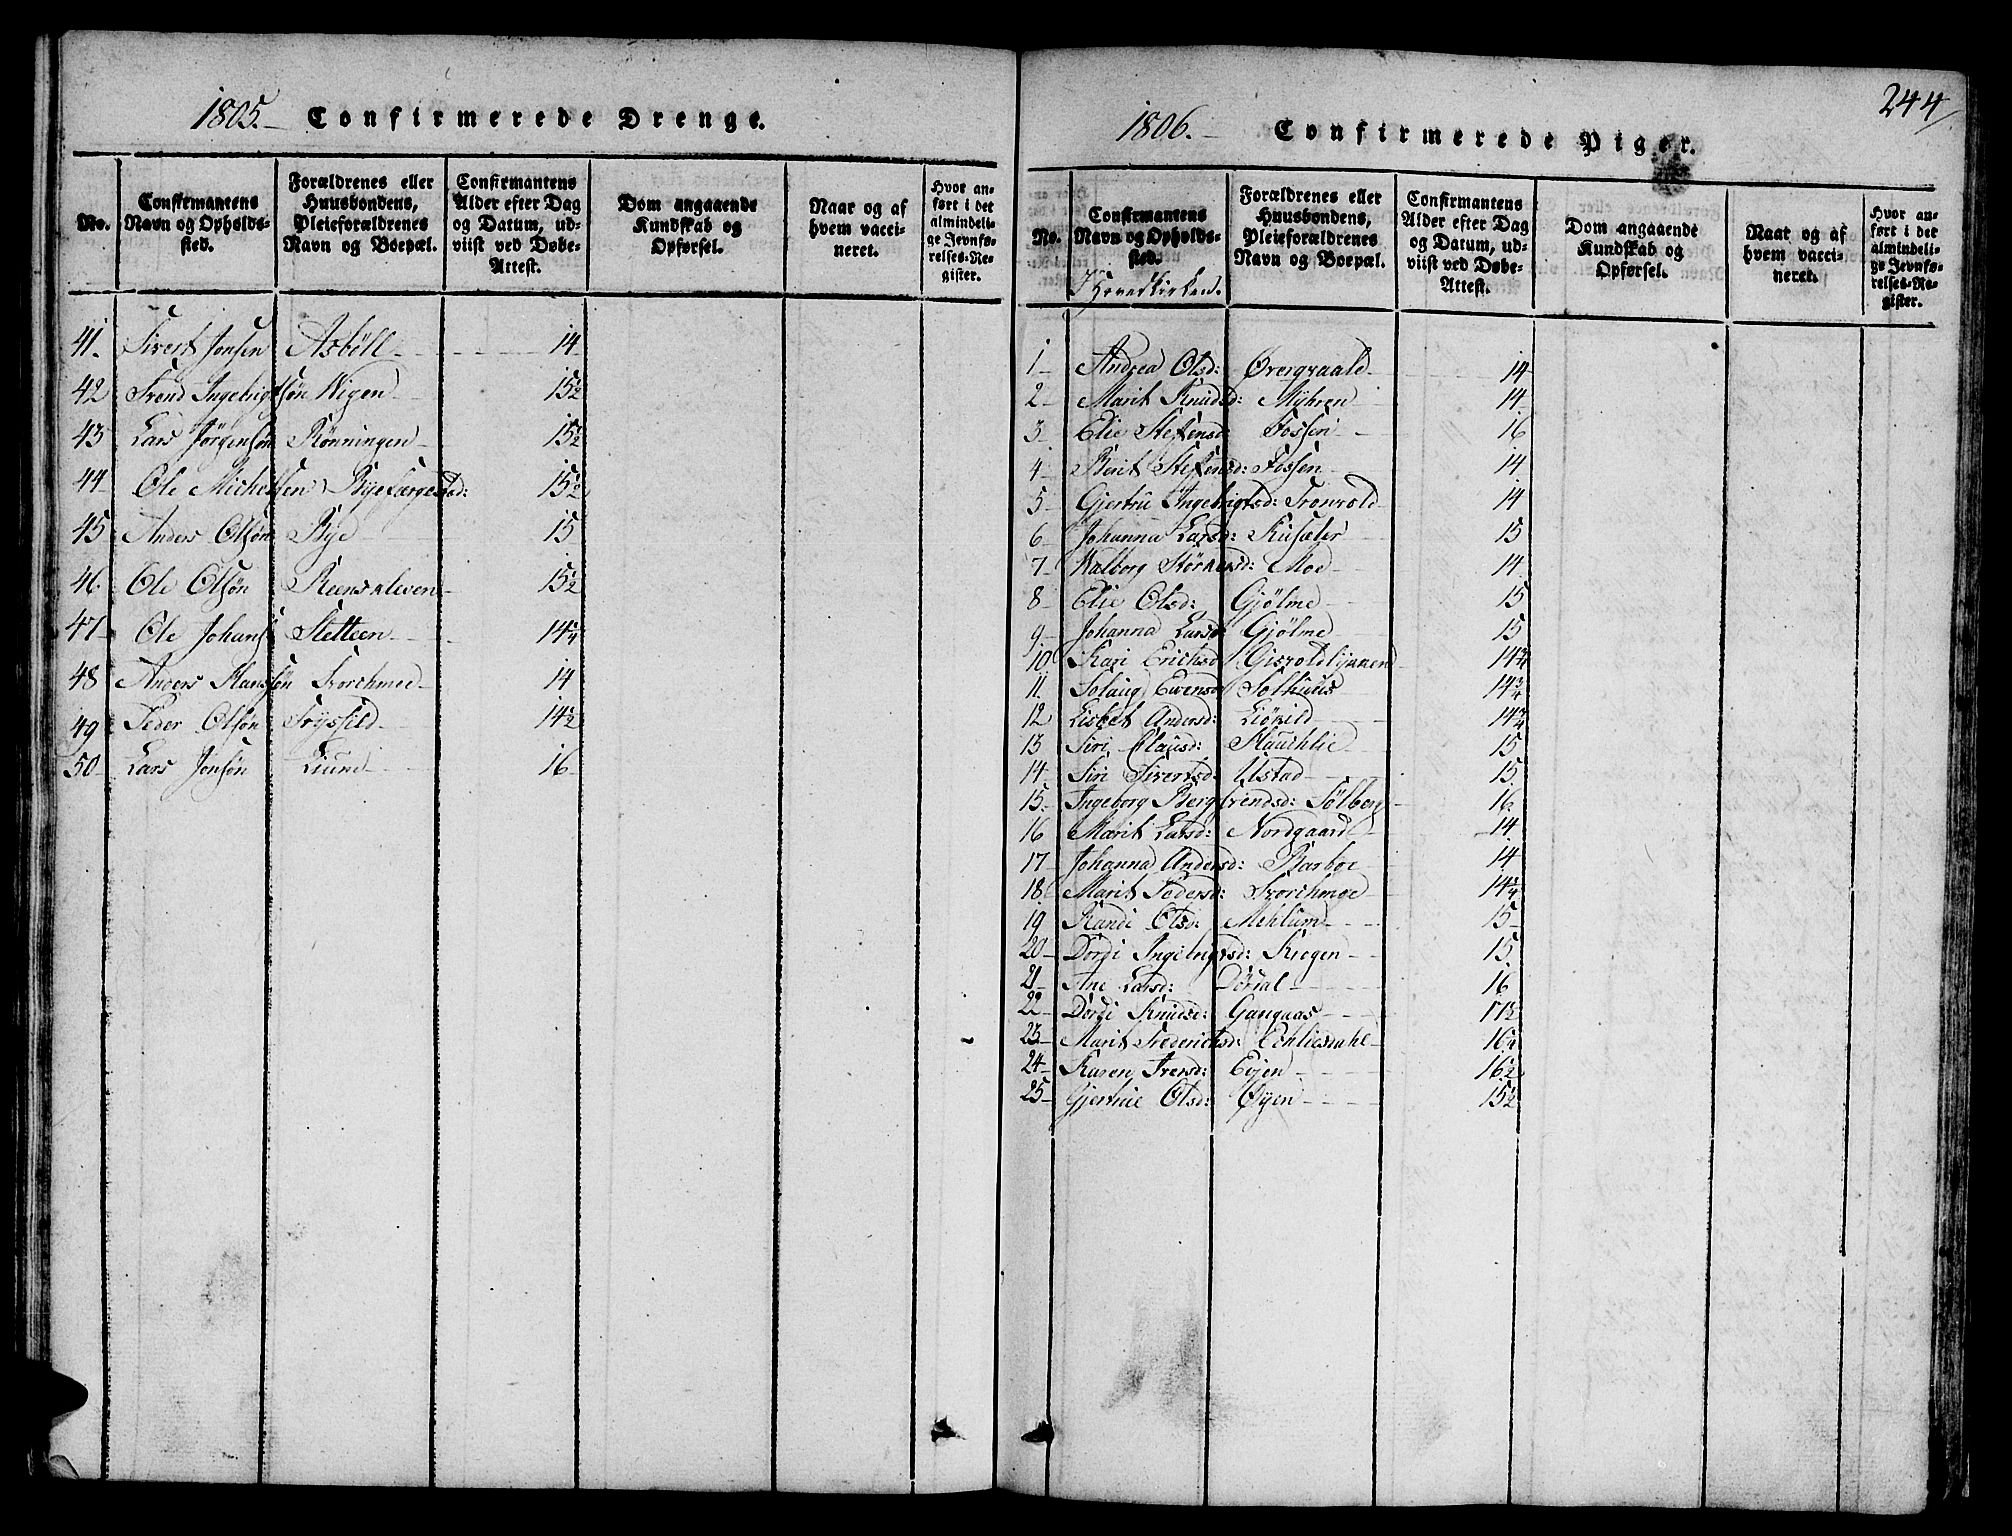 1805. Confirmerede Drenge.
No.
Confirmantens Navn og Opholds-sted.
Forældrenes eller Huusbondens, Pleieforældrenes Navn og Boepæl.
Confirmantens Alder efter Dag og Datum, ud-viist ved Døbe-Attest.
Dom angaaende Kundskab og Opførsel.
Naar og af hvem vacci-neret.
Hvor an-ført i det almindeli-ge Jevnfø-relses-Re-gister.
41. Sivert Jonsen Asbøll 14
42 Trond Ingebrigtsøn Wigen 15½
43 Lars Jørgensøn Rønningen 15½
44 Ole Michelsen Byefærgestad: 15½
45 Anders Olsøn Bye 15
46 Ole Olsøn Reenskleven 15½
47 Ole Johans Stetteen 14¼
48 Anders Hansøn Svorchmoe 14
49 Peder Olsøn 14½
50 Lars Jonsøn Liund 16
244
1806. Confirmerede Piger.
No.
Confirmantens Navn og Opholds-sted.
I Hovedkirken.
Forældrenes eller Huusbondens, Pleieforældrenes Navn og Boepæl.
Confirmantens Alder efter Dag og Datum, ud-viist ved Døbe-Attest.
Dom angaaende Kundskab og Opførsel.
Naar og af hvem vacci-neret.
Hvor an-ført i det almindeli-ge Jevnfø-relses-Re-gister.
1 Andrea Olsd: Øvergraald 14
2 Marit Knudsd: Myhren 14
3 Elie Stefensd: Fossen 16
4 Berit Stefensd: Fossen 14
5 Gjertru Ingebrigtsd: Tronvold 14
6 Johanna Larsd: Kusæter 15
7 Walborg Størkersd: Moe 14
8 Elie Olsd: Gjølme 15
9 Johanna Larsd Gjølme 15
10 Kari Erichsd 14¾
11. Solaug Evensd Solhuus 14¾
12 Lisbet Andersd: Liøkild 14¾
13 Siri Clausd: Hauchlie 15
14 Siri Sivertsd: Ustad 15
15. Ingeborg Bergsvendsd: Sølberg 16
16 Marit Larsd: Nordgaard 14
17 Johanna Andersd: Barboe 14
18 Marit Pedersd: Svorchmoe 14¾
19 Randi Olsd: Mehlum 15
20 Dordi Ingebrigtsd: Kiegen 15
21 Ane Larsd: Dørdal 16
22 Dordi Knudsd: Gangaas 17½
23 Marit Frederichsd: Echliesdahl 16¼
24 Karen Iversd: Eyen 16½
25 Gjertrue Olsd: Øyen 15½